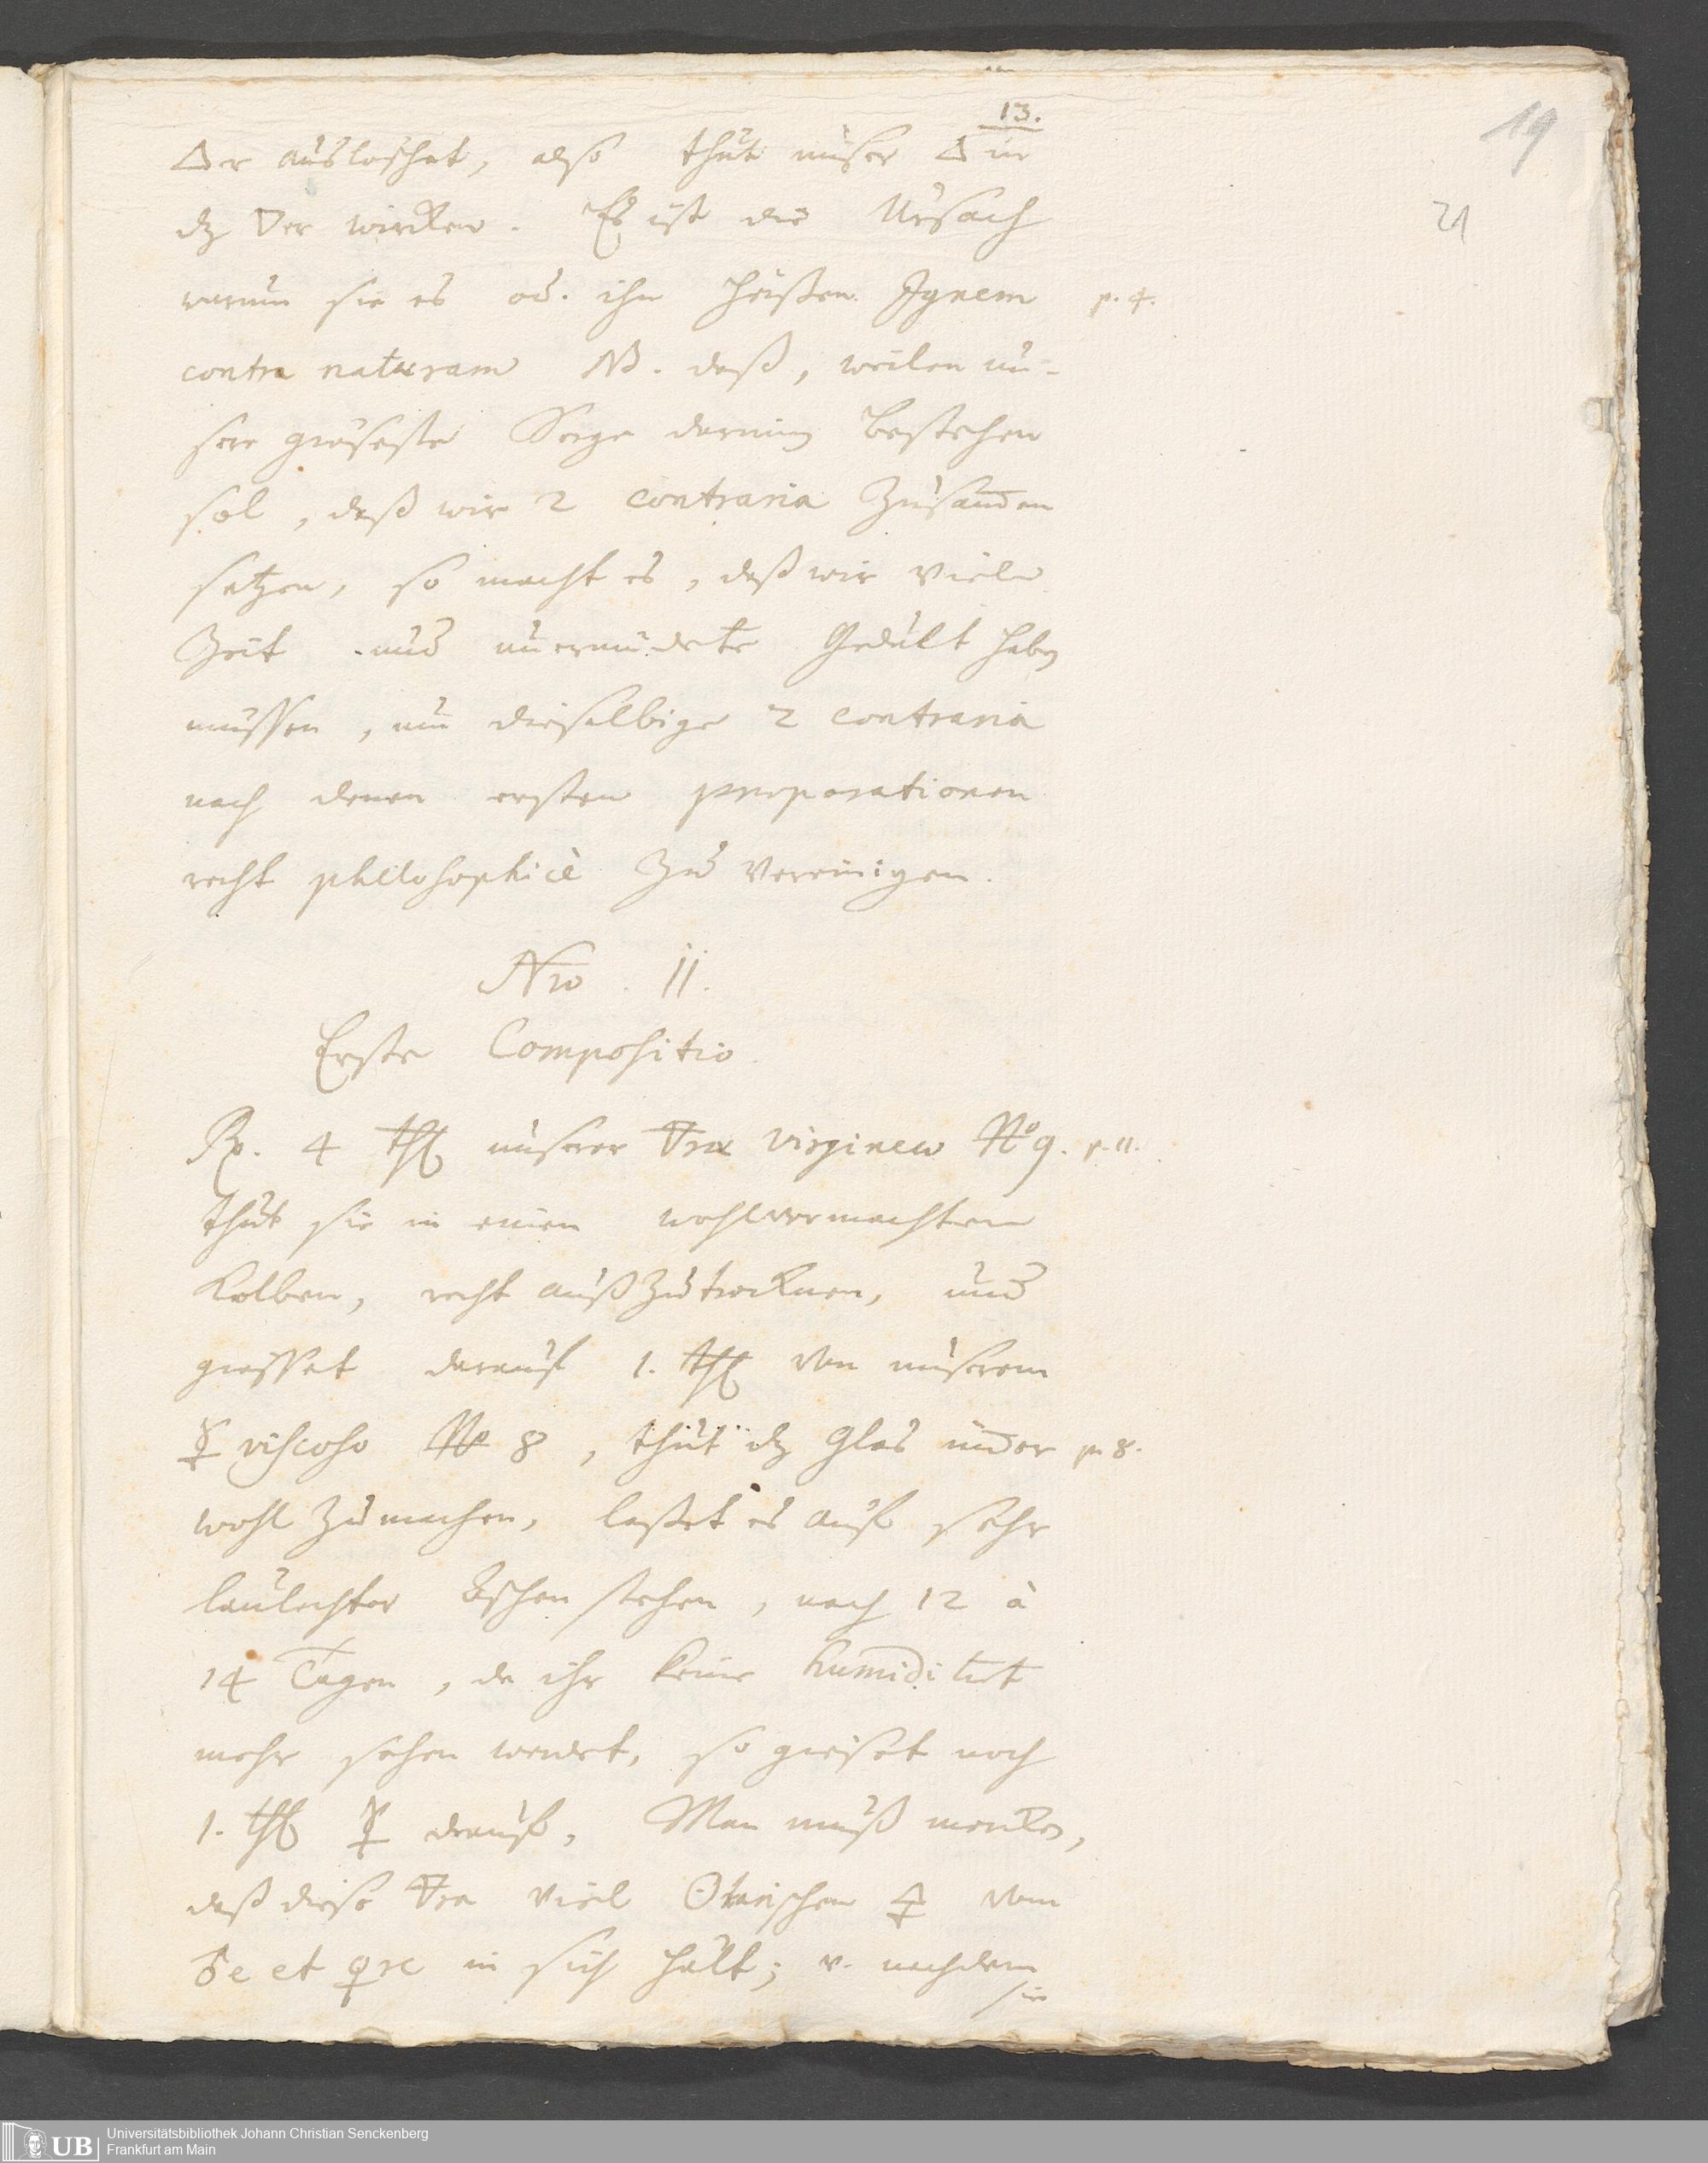 13.
19
△er auslöschet, also thut unser △ in
dz ▽er wircken. Es ist die Ursach
21
warum sie es od. ihn heißen Ignem p. 4.
contra naturam NB. daß, weilen un-
sere gröseste Sorge darinn bestehen
sol, daß wir 2 contraria Zusam̅en
setzen, so macht es, daß wir viele
Zeit und unermüdete Gedult haben
müssen, um dieselbige 2 contraria
nach denen ersten præparationen
recht philosophicè Zu vereinigen.
Nro. 11.
Erste Compositio.
Rp. 4 thl unserer 🜃ræ virgineæ No 9. p. 11.
thut sie in einen wohlvermachten
Kolben, recht auß Zutrocknen, und
giesset darauf 1. thl von unserem
☿ viscoso No 8, thut dz Glas wider p. 8.
wohl Zumachen, lasset es auf sehr
laulechter Aschen stehen, nach 12 à
14 Tagen, da ihr keine humiditæt
mehr sehen werdet, so gieset noch
1. thl ☿ drauf, Man muß mercken,
daß diese 🜃ra viel ☉larischen 🜍 vom
♂e et ♀re in sich hält; v. nachdem
sie
Universitätsbibliothek Johann Christian Senckenberg
Frankfurt am Main
UB